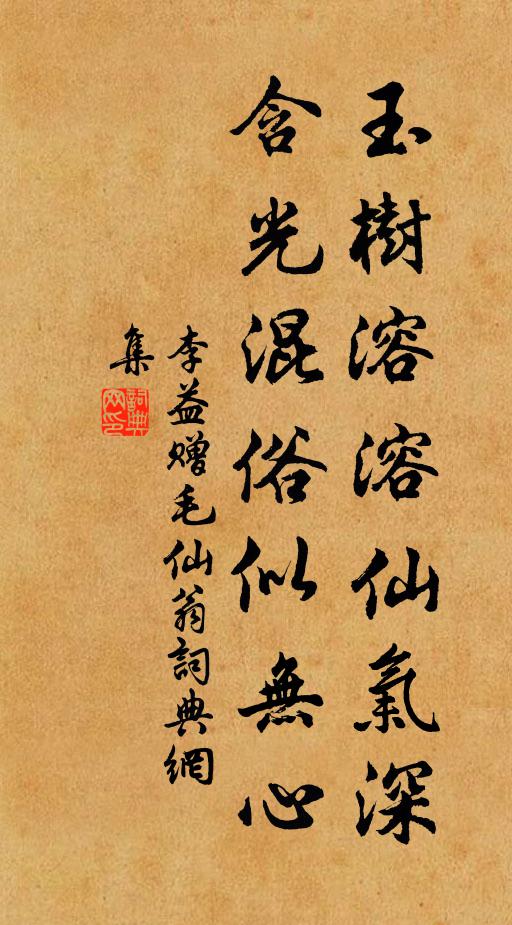 玉樹溶溶仙氣深
含光混俗似無心
李益赠毛仙翁詞典網
集
詞典網印